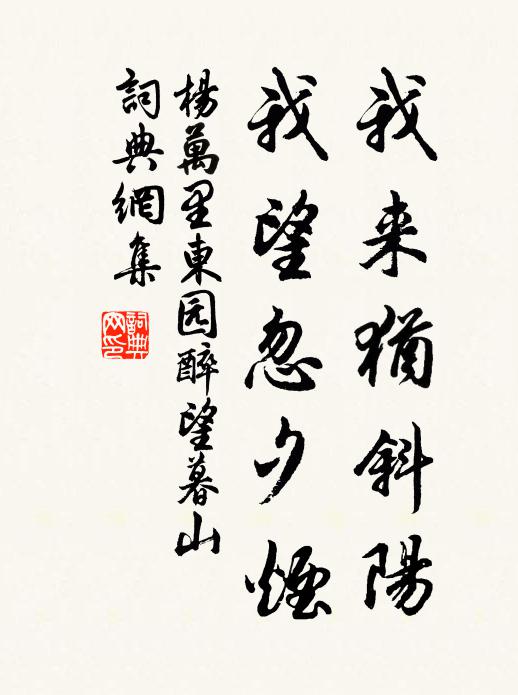 我来猶斜陽
我望忽夕煙
楊萬里東园醉望暮山
詞典網集
詞典
网印